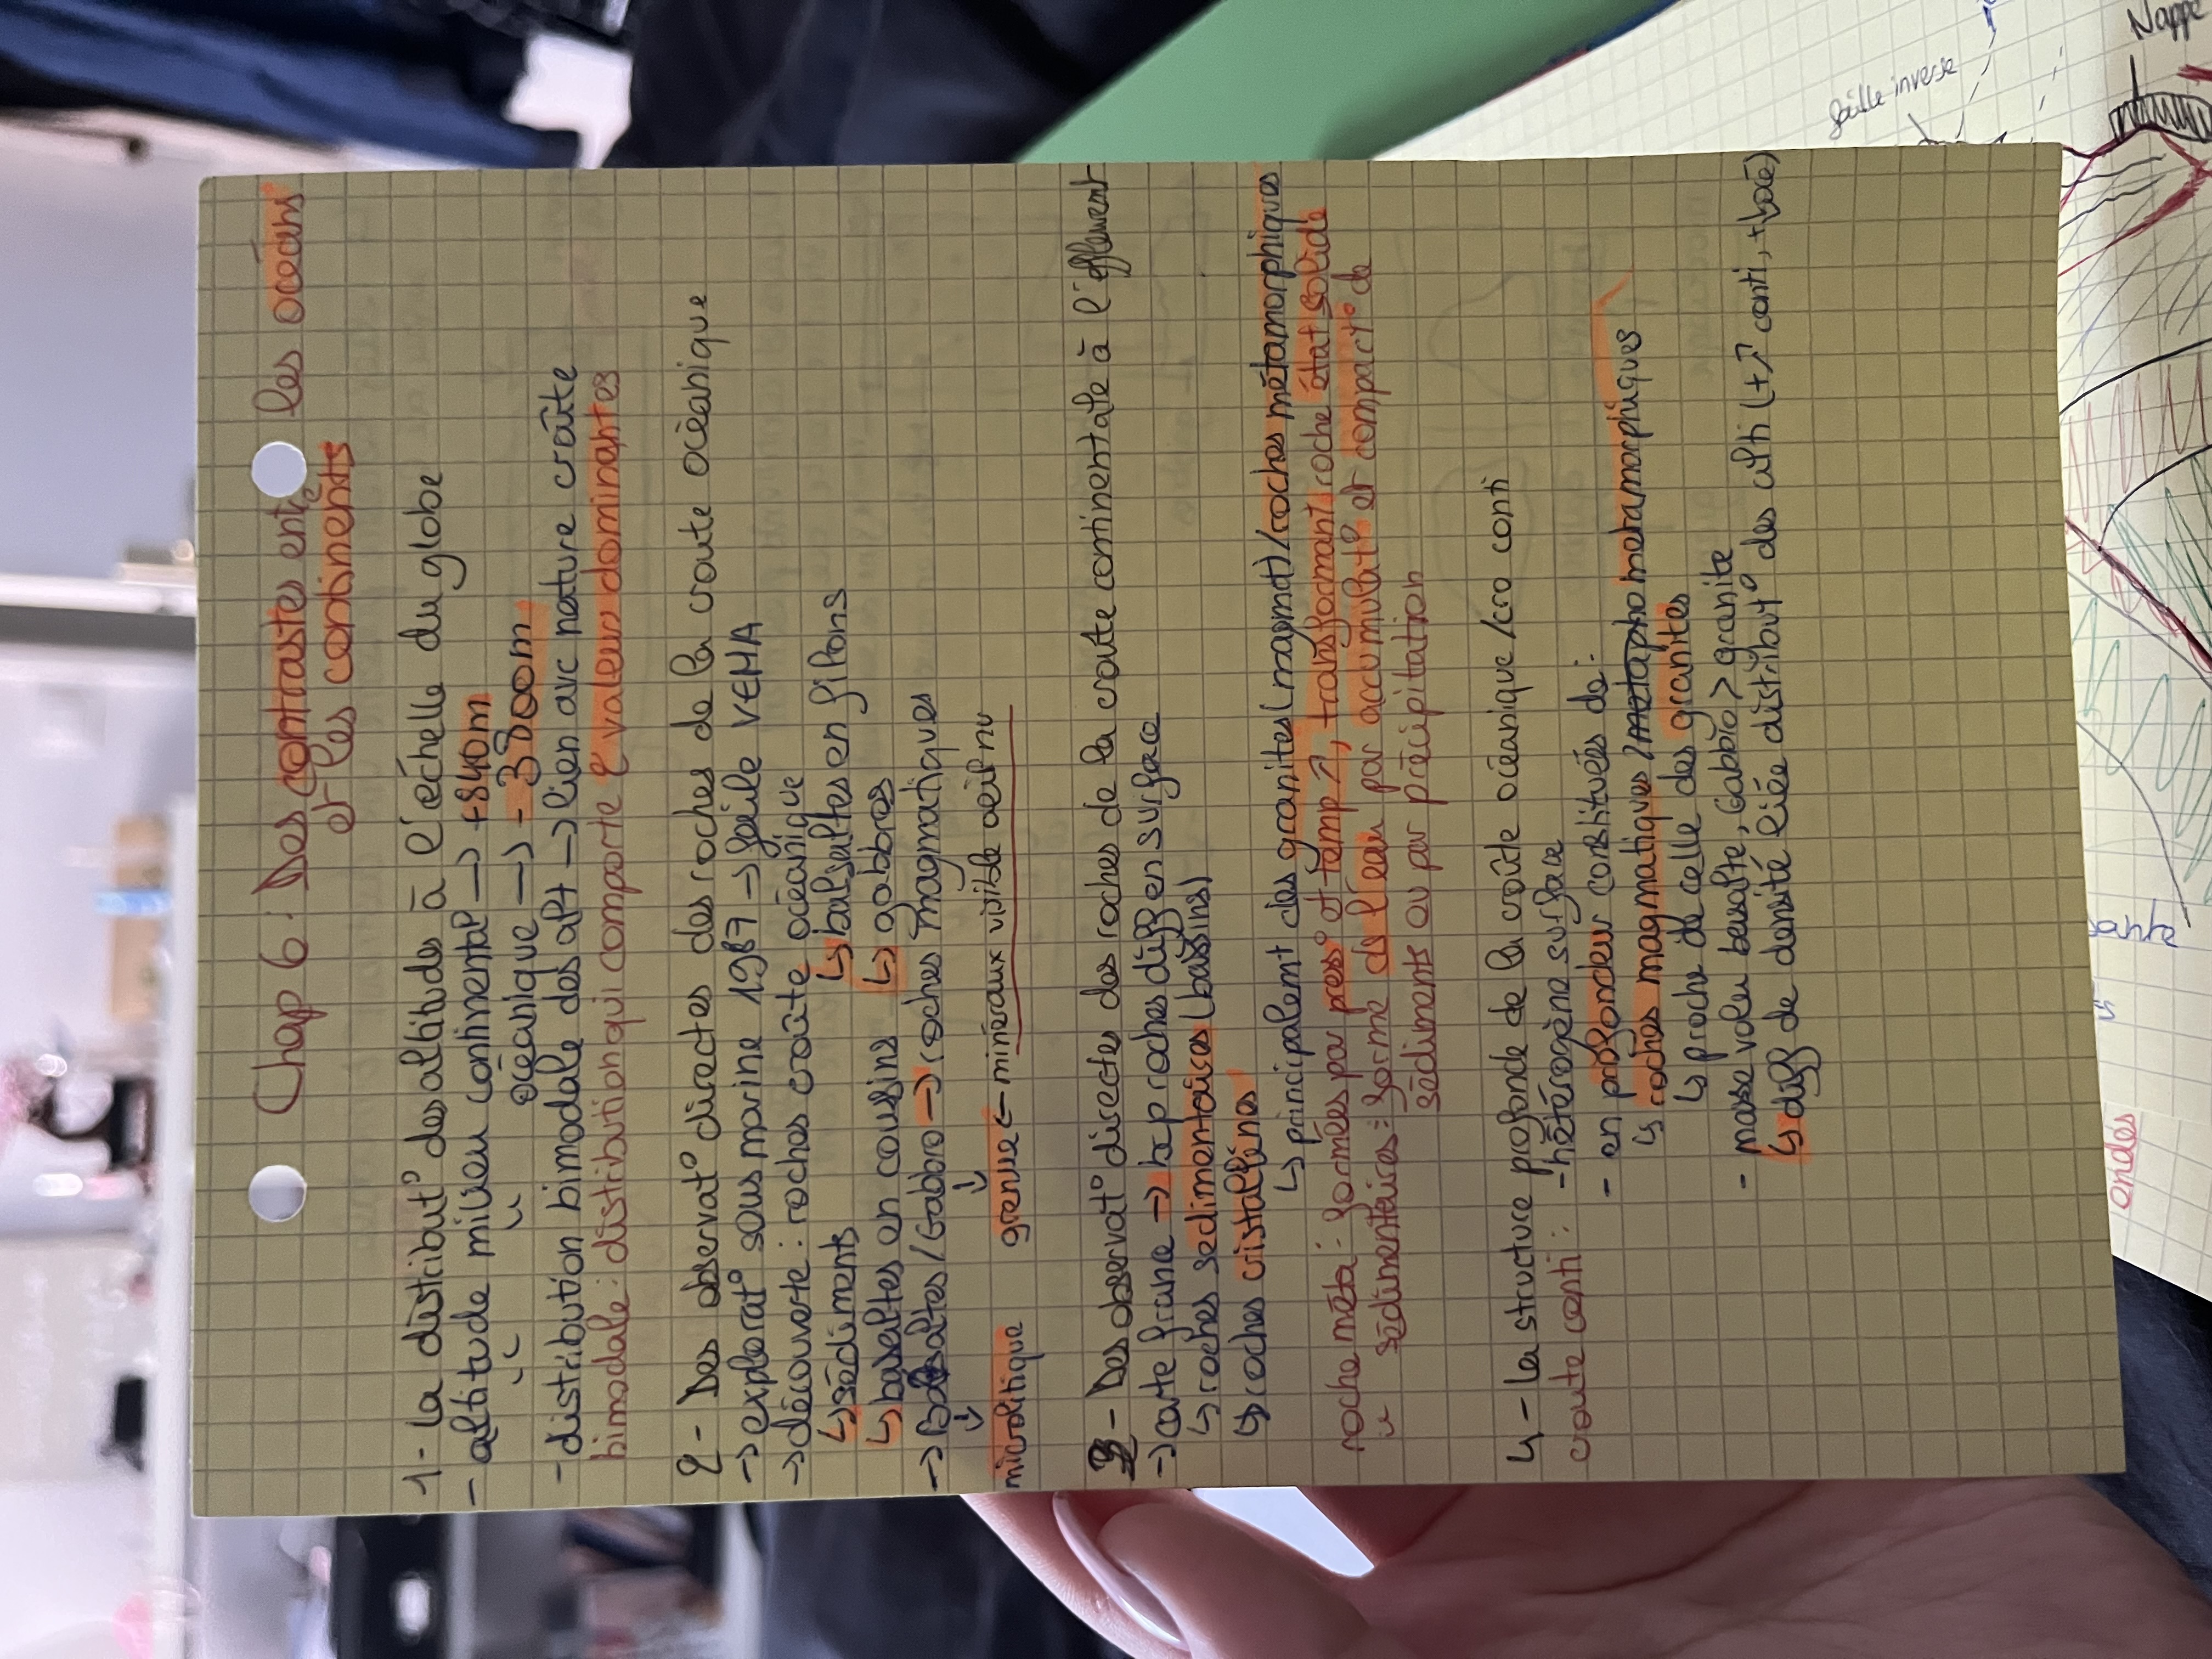 Chap 6 : Des contrastes entre les océans
et les continents
1 - La distribut° des altitudes à l'échelle du globe
- altitude milieu continental → +840m
" " océanique → - 3800m
- distribution bimodale des alt → lien avc nature croûte
bimodale : distribution qui comporte 2 valeurs dominantes
2 - Des observat° directes des roches de la croute océanique
→ explorat° sous marine 1987 → faille VEMA
→ découverte : roches croûte océanique
↳ sédiments ↳ balsaltes en filons
↳ basaltes en coussins ↳ gabbros
→ Basaltes / Gabbro → roches magmatiques
↓ ↓
microlitique grenue ← minéraux visible œil nu
3 - Des observat° directes des roches de la croute continentale à l'affleurement
→ carte frane → bcp roches diff en surface
↳ roches sedimentaires (bassins)
↳ roches cristallines
↳ principalement des granites (magmat) / roches métamorphiques
roche méta : formées par press° et temp ↗, transformant roche état solide
" sédimentaires : formé de l'eau par accumulat° et compact° de
sédiments ou par précipitation
4 - La structure profonde de la croûte océanique / cro conti
croute conti : - hétérogène surface
- en profondeur constituées de :
↳ roches magmatiques / metamorphiques
↳ proche de celle des granites
- masse volu basalte, Gabbro > granite
↳ diff de densité liée distribut° des alti (+↗ conti,
faille inverse
Nappe
ondes